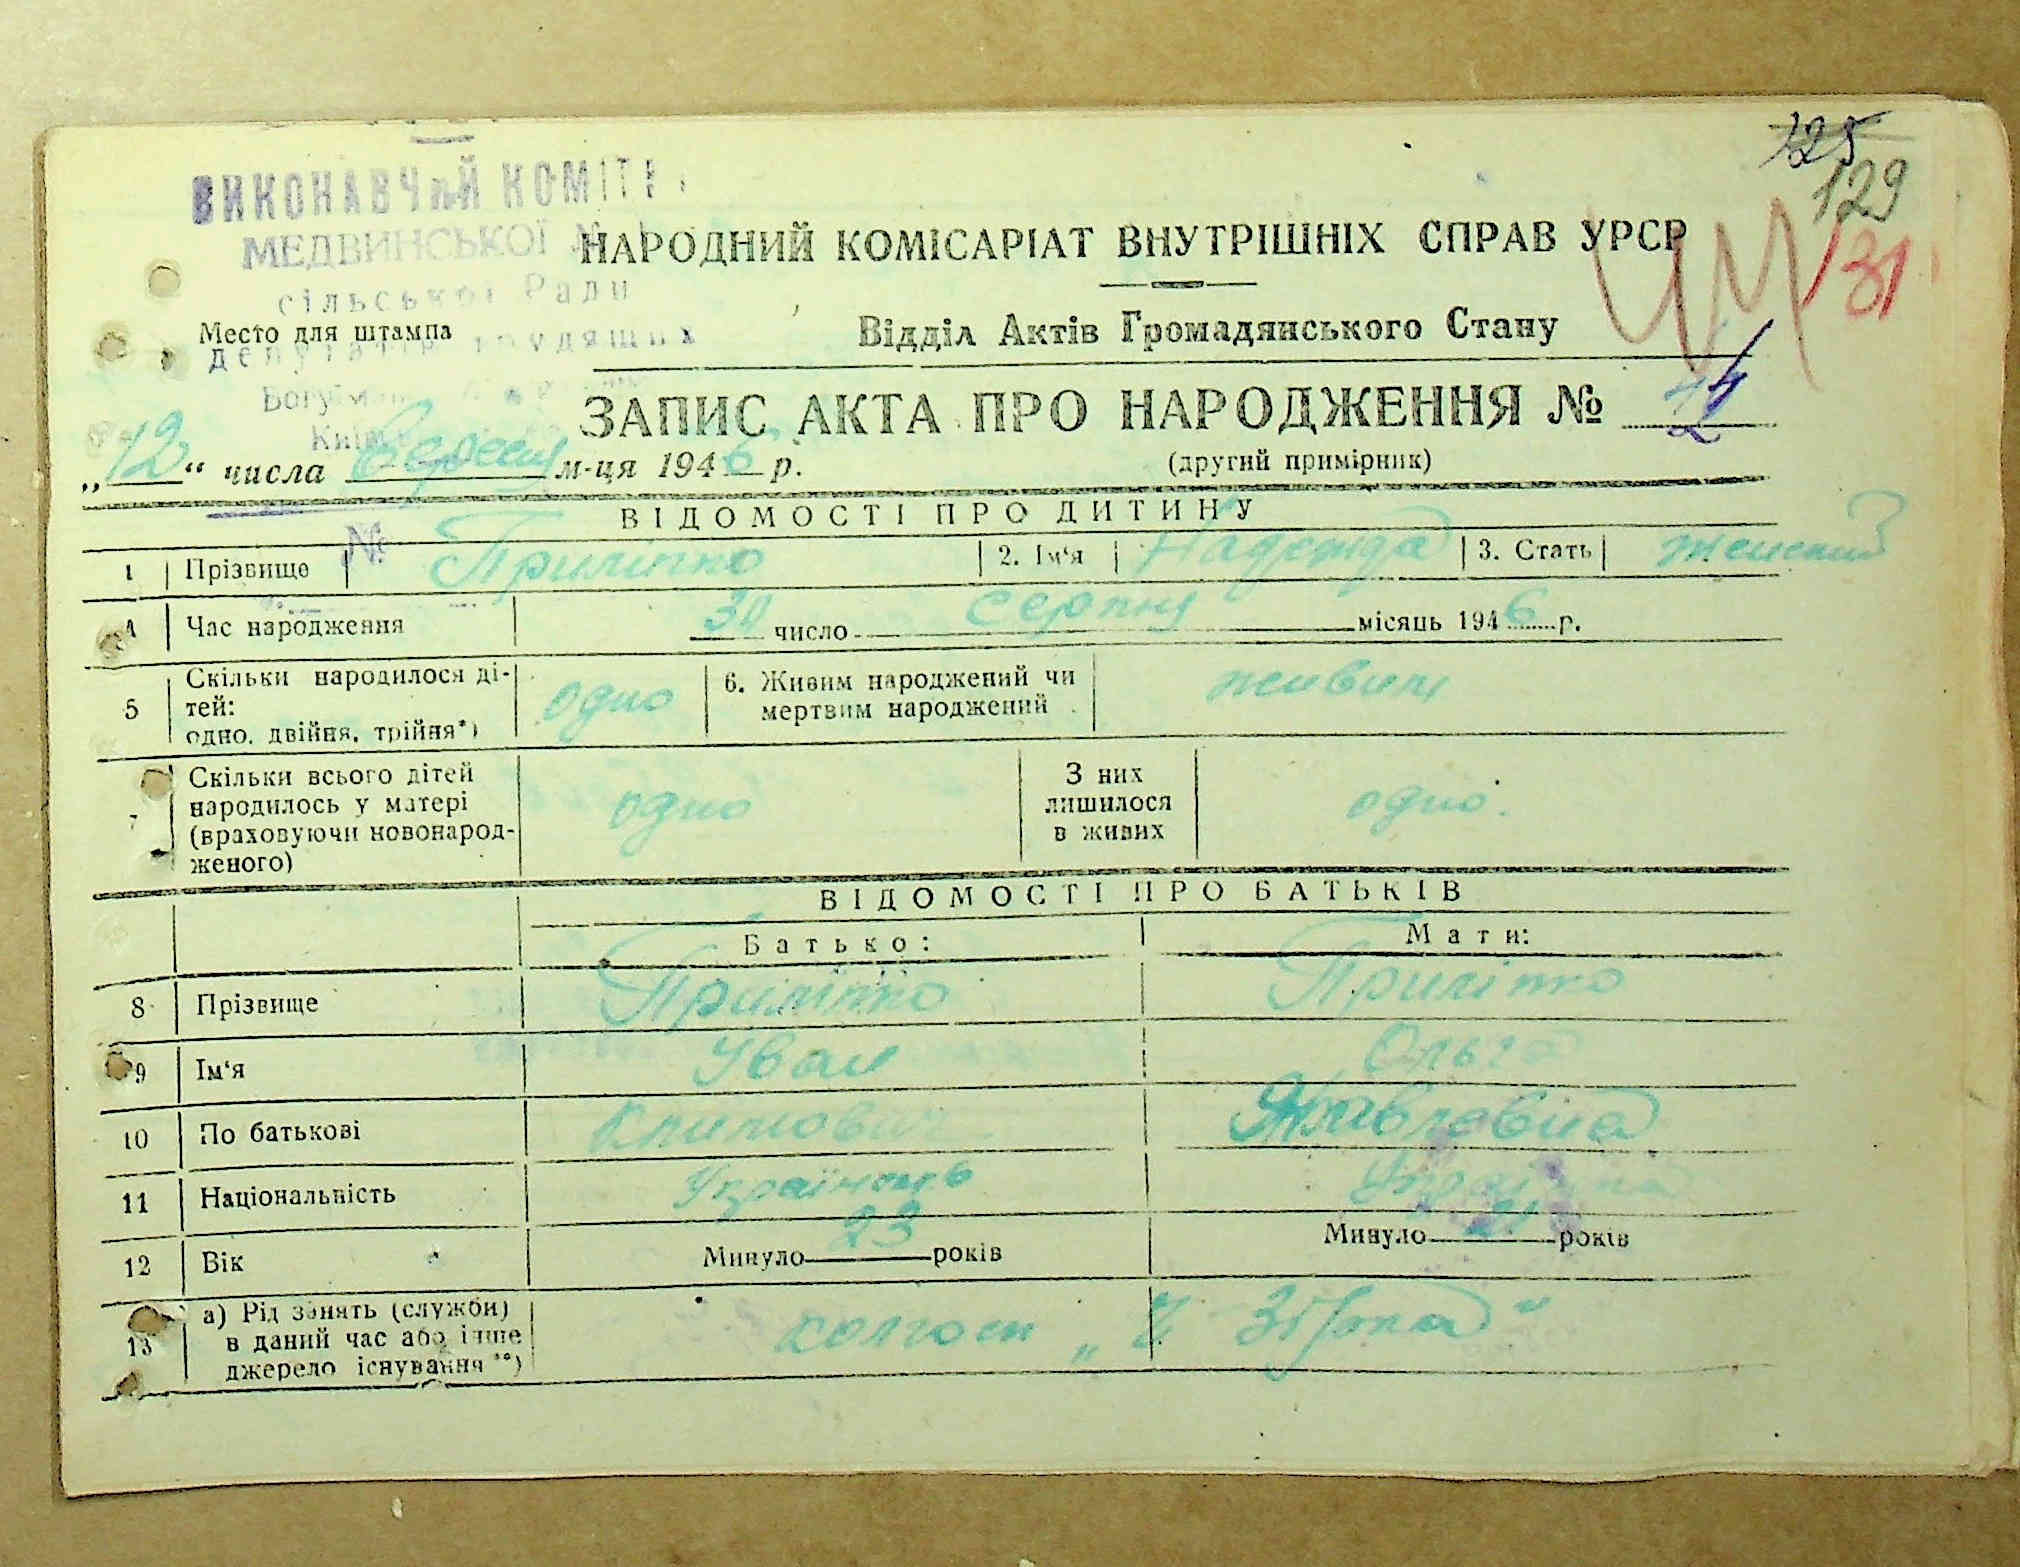 125
129
31
ВИКОНАВЧИЙ КОМІТЕ
МЕДВИНСЬКОЇ
НАРОДНИЙ КОМІСАРІАТ ВНУТРІШНІХ СПРАВ УРСР
сільської Ради
Место для штампа
депутатів трудящих
Відділ Актів Громадянського Стану
ЗАПИС АКТА ПРО НАРОДЖЕННЯ №
„12“ числа Вересня м-ця 1946 р.
(другий примірник)
ВІДОМОСТІ ПРО ДИТИНУ
№
1 Прізвище Приліпко 2. Ім‘я Надежда 3. Стать женский
4 Час народження 30 число серпня місяць 1946 р.
5 Скільки народилося дітей: одно, двійня, трійня*) одно 6. Живим народжений чи мертвим народжений живим
7 Скільки всього дітей народилось у матері (враховуючи новонародженого) одно З них лишилося в живих одно.
ВІДОМОСТІ ПРО БАТЬКІВ
Батько: Мати:
8 Прізвище Приліпко Приліпко
9 Ім‘я Іван Ольга
10 По батькові Климович Павловна
11 Національність Українець Українка
12 Вік Минуло 23 років Минуло 21 років
13 а) Рід занять (служби) в даний час або інше джерело існування**) колгосп